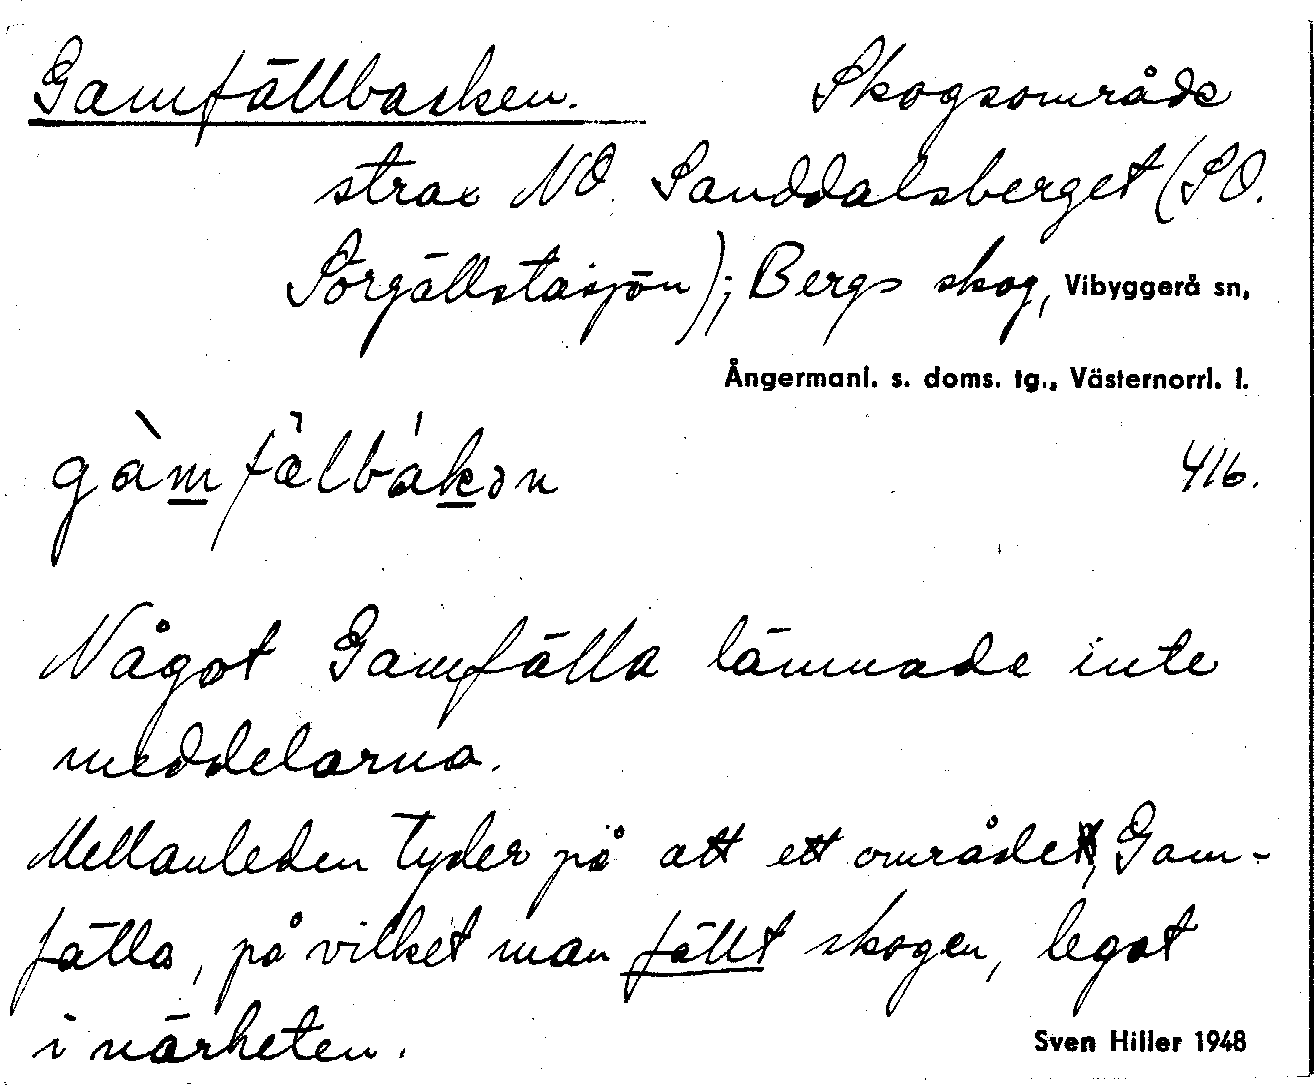 Gamfällbacken. Skogsområde
strax NO. Sanddalsberget (SO.
Sörgällstasjön); Bergs skog, Vibyggerå sn,
Ångermanl. s. doms. tg., Västernorrl. l.
gàmfä̀lbákən 416.
Något Gamfälla lämnade inte
meddelarna.
Mellanleden tyder på att ett område, Gam-
fälla, på vilket man fällt skogen, legat
i närheten.
Sven Hiller 1948